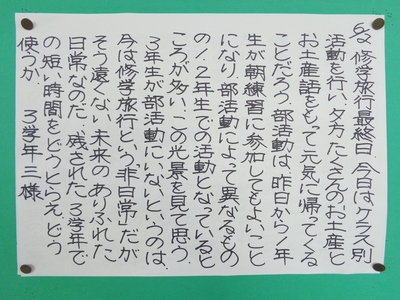 6/2 修学旅行最終日、今日はクラス別
活動を行い、夕方、たくさんのお土産と
お土産話をもって元気に帰ってくる
ことだろう。部活動は、昨日から1年
生が朝練習に参加してもよいこと
になり、部活動によって異なるもの
の1、2年生での活動となっていると
ころが多い。この光景を見て思う。
3年生が部活動にいないというのは、
今は修学旅行という非日常だが
そう遠くない未来のありふれた
日常なのだ、残された、3学年で
の短い時間をどうとらえ、どう
使うか。 3学年三様